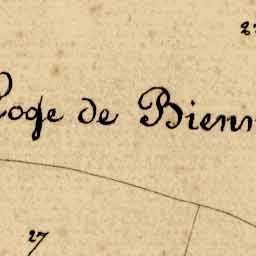 Loge de Bienn
27